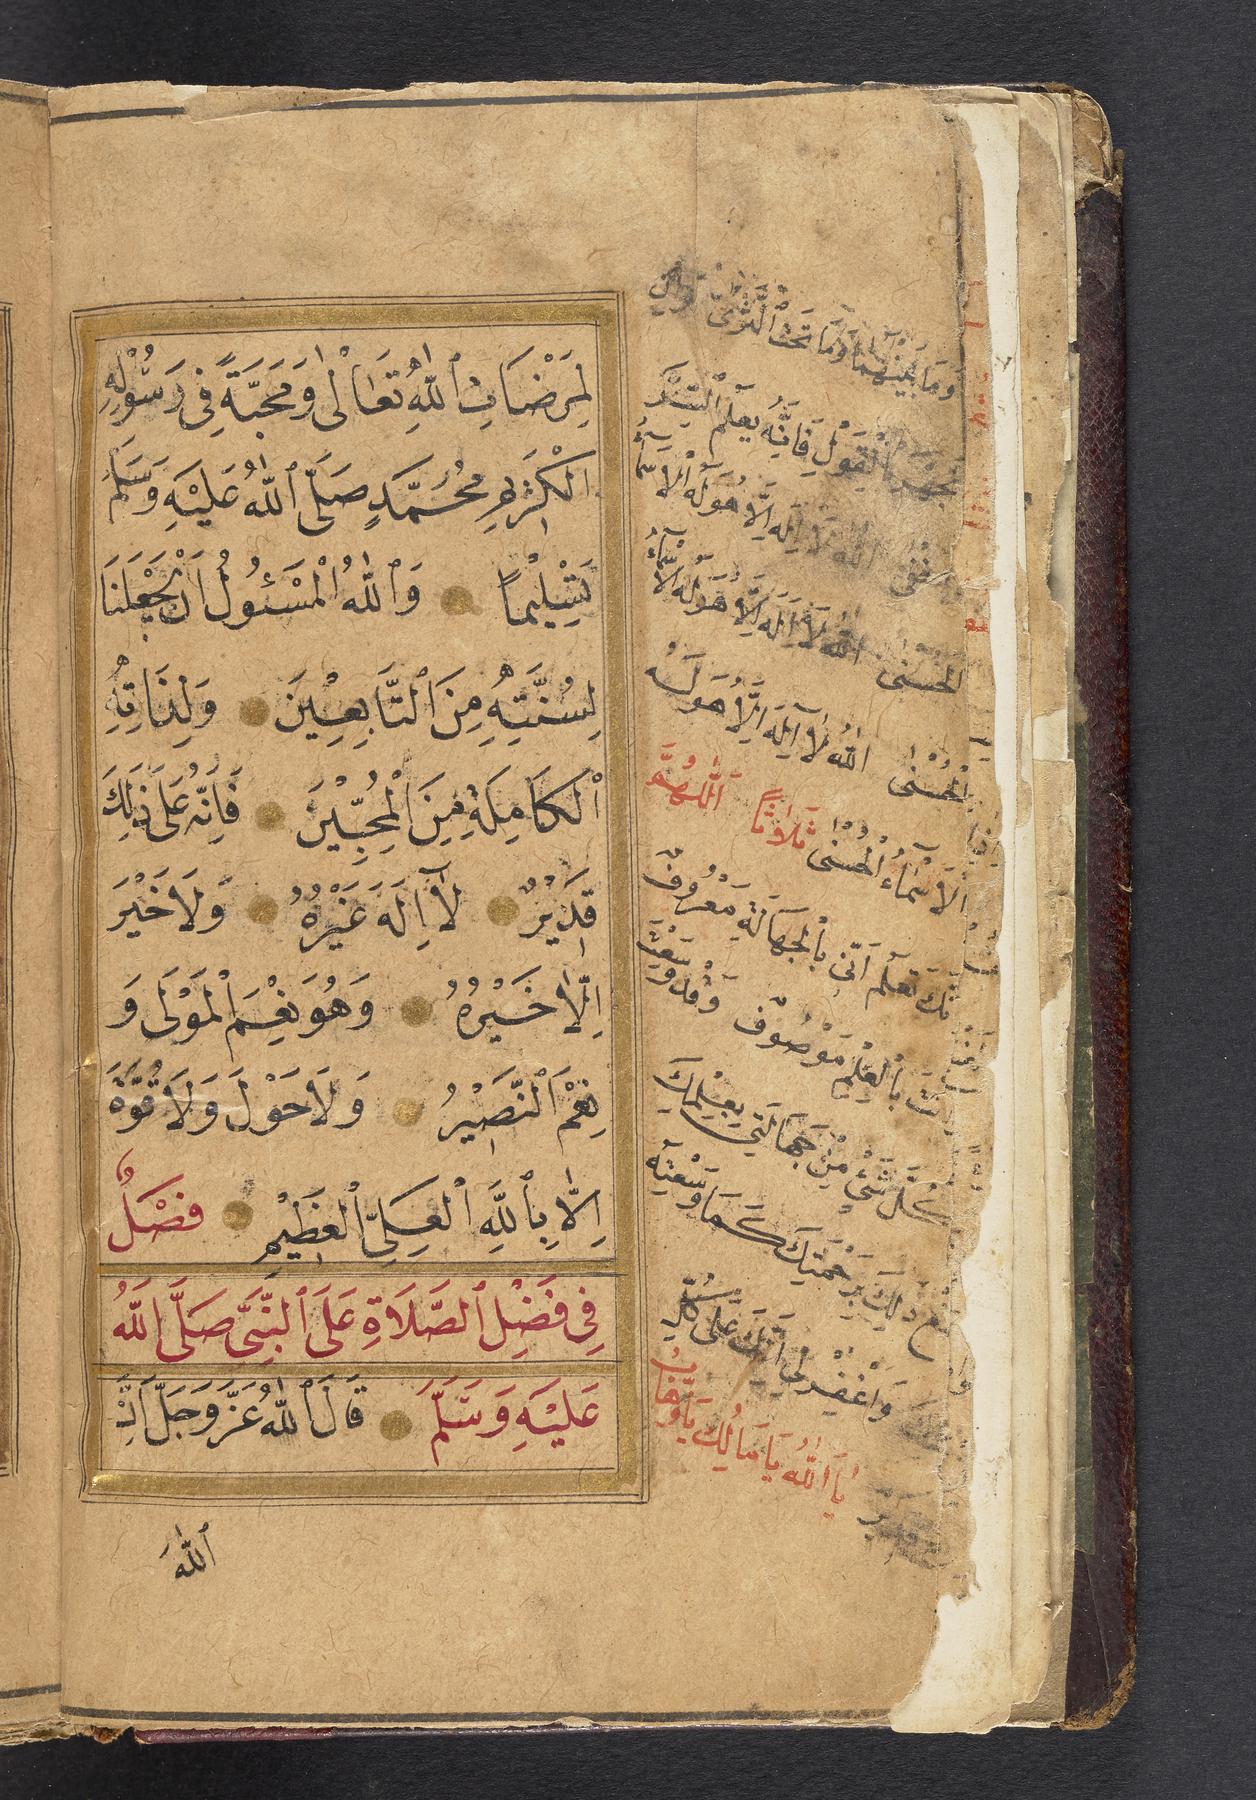 لِمَرْضَاتِ ٱللّٰهِ تَعَالٰى وَمَحَبَّةً فِى رَسُوْلِهِ
الْكَرِيْمِ مُحَمَّدٍ صَلَّى ٱللّٰهُ عَلَيْهِ وَسَلَّمَ
تَسْلِيْمًا وَٱللّٰهُ الْمَسْئُولُ اَنْ يَجْعَلَنَا
لِسُنَّتِهِ مِنَ ٱلتَّابِعِيْنَ وَلِذَاتِهِ
ٱلْكَامِلَةِ مِنَ الْمُحِبِّيْنَ فَاِنَّهُ عَلٰى ذٰلِكَ
قَدِيْرٌ لَآ اِلَهَ غَيْرُهُ وَلَا خَيْرَ
اِلَّا خَيْرُهُ وَهُوَ نِعْمَ الْمَوْلَى وَ
نِعْمَ ٱلنَّصِيْرُ وَلَا حَوْلَ وَلَا قُوَّةَ
اِلَّا بِٱللّٰهِ ٱلْعَلِىِّ ٱلْعَظِيْمِ فَصْلٌ
فِى فَضْلِ ٱلصَّلَاةِ عَلَى ٱلنَّبِىِّ صَلَّى ٱللّٰهُ
عَلَيْهِ وَسَلَّمَ قَالَ ٱللّٰهُ عَزَّ وَجَلَّ اِنَّ
ٱللّٰهَ
وَمَا بَيْنَهُمَا وَمَا تَحْتَ الثَّرٰى
بِالْقَوْلِ فَاِنَّهُ يَعْلَمُ السِّرَّ
اِلَّا هُوَ لَهُ الْاَسْمَاءُ
الْحُسْنٰى اَللّٰهُ لَا اِلٰهَ اِلَّا هُوَ لَهُ الْاَسْمَاءُ
الْحُسْنٰى اَللّٰهُ لَا اِلٰهَ اِلَّا هُوَ لَهُ
الْاَسْمَاءُ الْحُسْنٰى ثَلَاثًا اَللّٰهُمَّ
تَعْلَمُ اَنِّى بِالْجَهَالَةِ مَعْرُوفٌ
بِالْعِلْمِ مَوْصُوفٌ وَقَدْ وَسِعْتَ
كُلَّ شَىْءٍ مِنْ جَهَالَتِى بِعِلْمِكَ
ذٰلِكَ بِرَحْمَتِكَ كَمَا وَسِعْتَهُ
وَاغْفِرْ لِى اِنَّكَ عَلٰى كُلِّ
يَا اَللّٰهُ يَا مَالِكُ يَا وَهَّابُ